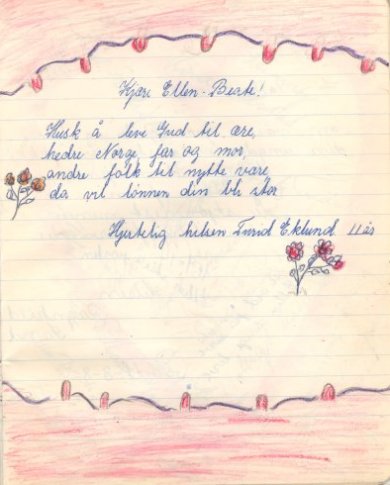 Kjære Ellen-Beate!
Husk å leve Gud til ære,
hedre Norge, far og mor,
andre folk til nytte være,
da vil lønnen din bli stor
Hjertelig hilsen Turid Eklund 11 år